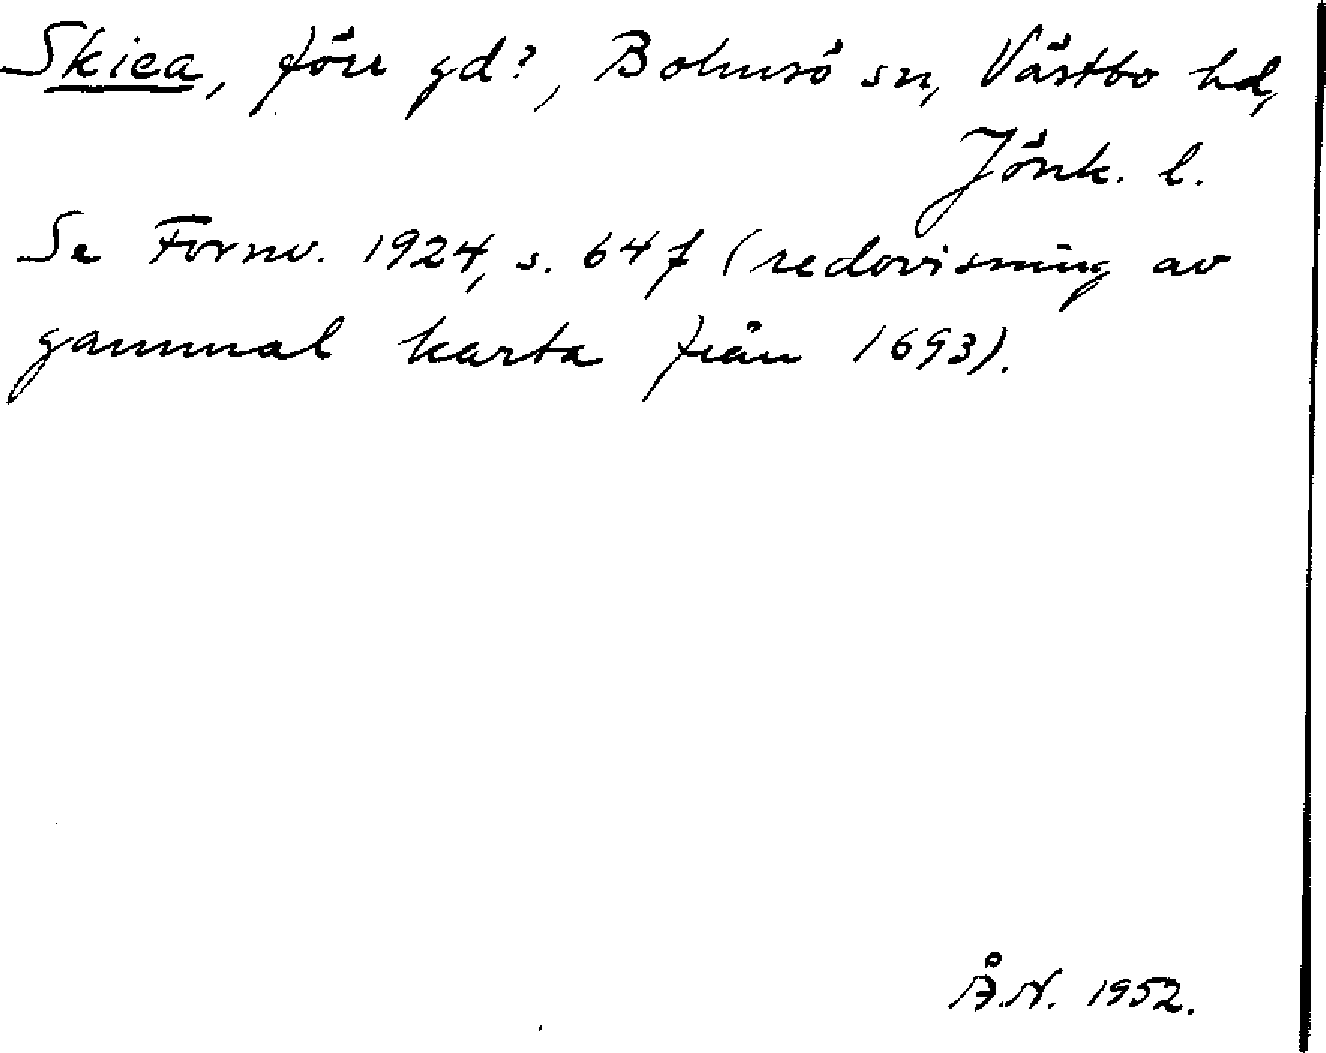 Skiea, förr gd?, Bolmsö sn, Västbo hd,
Jönk. l.
Se Fornv. 1924, s. 64 f (redovisning av
gammal karta från 1693).
Å.N. 1952.